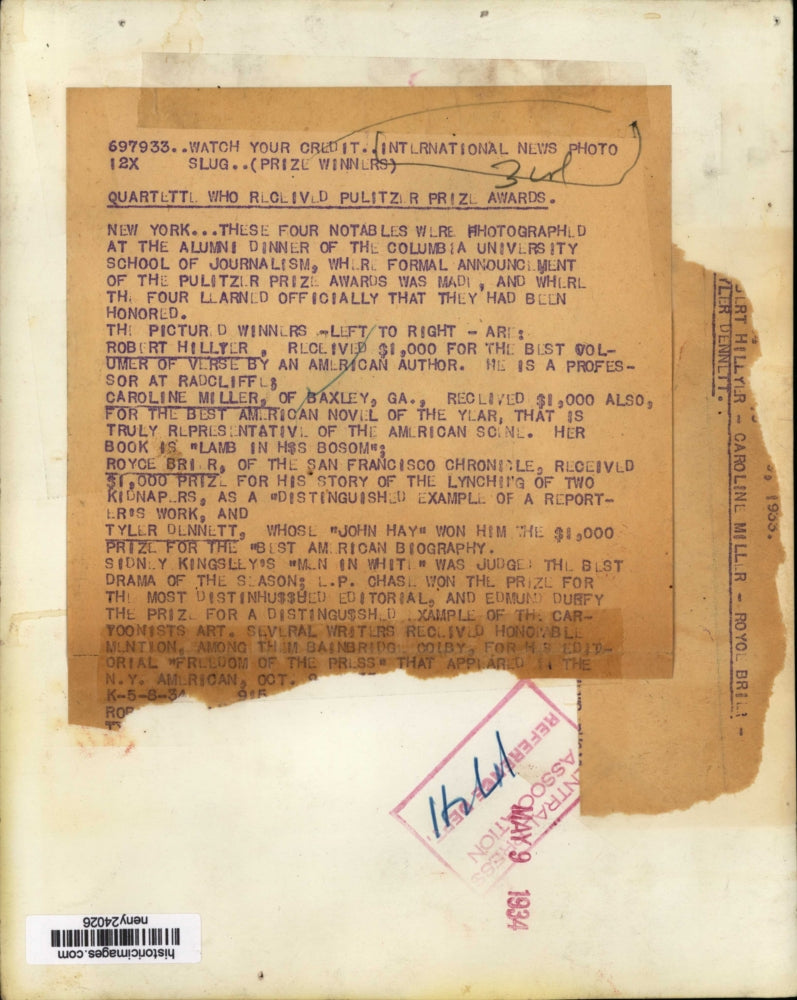 697933..WATCH YOUR CREDIT..INTERNATIONAL NEWS PHOTO
12X SLUG..(PRIZE WINNERS)
QUARTETTE WHO RECEIVED PULITZER PRIZE AWARDS.
NEW YORK...THESE FOUR NOTABLES WERE PHOTOGRAPHED
AT THE ALUMNI DINNER OF THE COLUMBIA UNIVERSITY
SCHOOL OF JOURNALISM, WHERE FORMAL ANNOUNCEMENT
OF THE PULITZER PRIZE AWARDS WAS MADE, AND WHERE
THE FOUR LEARNED OFFICIALLY THAT THEY HAD BEEN
HONORED.
THE PICTURED WINNERS - LEFT TO RIGHT - ARE:
ROBERT HILLYER, RECEIVED $1,000 FOR THE BEST VOL-
UMER OF VERSE BY AN AMERICAN AUTHOR. HE IS A PROFES-
SOR AT RADCLIFFE;
CAROLINE MILLER, OF BAXLEY, GA., RECEIVED $1,000 ALSO,
FOR THE BEST AMERICAN NOVEL OF THE YEAR, THAT IS
TRULY REPRESENTATIVE OF THE AMERICAN SCENE. HER
BOOK IS "LAMB IN H$S BOSOM";
ROYCE BRIER, OF THE SAN FRANCISCO CHRONICLE, RECEIVED
$1,000 PRIZE FOR HIS STORY OF THE LYNCHING OF TWO
KIDNAPERS, AS A "DISTINGUISHED EXAMPLE OF A REPORT-
ER'S WORK, AND
TYLER DENNETT, WHOSE "JOHN HAY" WON HIM THE $1,000
PRIZE FOR THE "BEST AMERICAN BIOGRAPHY.
SIDNEY KINGSLEY'S "MEN IN WHITE" WAS JUDGED THE BEST
DRAMA OF THE SEASON; E.P. CHASE WON THE PRIZE FOR
THE MOST DISTINHU$$HED EDITORIAL, AND EDMUND DUFFY
THE PRIZE FOR A DISTINGU$SHED EXAMPLE OF THE CAR-
TOONISTS ART. SEVERAL WRITERS RECEIVED HONORABLE
MENTION, AMONG THEM BAINBRIDGE COLBY, FOR HIS EDIT-
ORIAL "FREEDOM OF THE PRESS" THAT APPEARED IN THE
N.Y. AMERICAN, OCT.
K-5-8-34 915
ROB
JERT HILLYER - CAROLINE MILLER - ROYCE BRIER -
TYLER DENNETT.
1933.
CENTRAL PRESS
ASSOCIATION
REFERENCE DEPT
MAY 9 1934
historicimages.com
neny24026